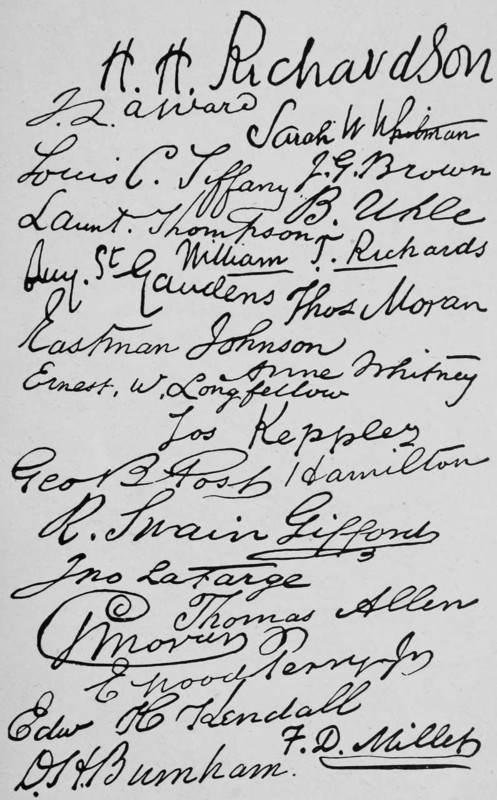 H. H. Richardson
J. Q. A. Ward
Sarah W Whitman
Louis C. Tiffany
J. G. Brown
B. Uhle
Launt. Thompson
William T. Richards
Aug. St Gaudens
Thos Moran
Eastman Johnson
Anne Whitney
Ernest. W. Longfellow
Jos Keppler
Geo B Post
Hamilton
R. Swain Gifford
Jno LaFarge
Thomas Allen
P Moran
E Wood Perry Jr
Edw H Kendall
F. D. Millet
D. H. Burnham.